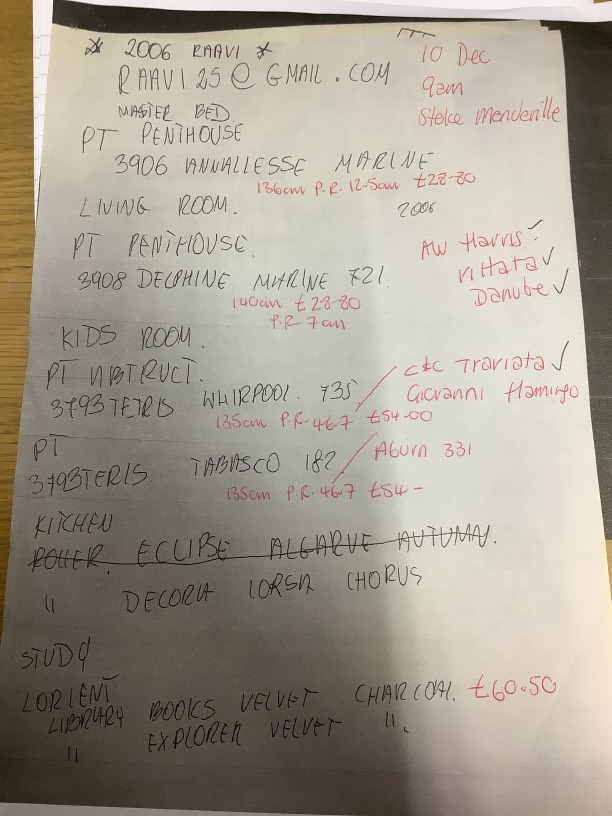 * 2006 RAAVI *
10 Dec
RAAVI25@GMAIL.COM
9am
MASTER BED
Stoke Mendeville
PT PENTHOUSE
3906 ANNALLESSE MARINE
136cm P.R. 12.5cm £28-80
LIVING ROOM.
2006
PT PENTHOUSE.
AW Harris ✓
3908 DELPHINE MARINE 721.
Vittata ✓
Danube ✓
140cm £28-80
P.R 7cm
KIDS ROOM.
PT NBTRUCT.
C&C Traviata ✓
3793 TETRIS WHIRPOOL. 735
Giovanni flamingo
135cm P.R. 46.7 £54-00
PT
Aburn 331
3793 TERIS. TABASCO 182
135cm P.R. 46.7 £54-
KITCHEN
ROLLER. ECLIPSE ALGARVE AUTUMN.
" DECORA LORSA CHORUS
STUDY
LORIENT
LIBRARY BOOKS VELVET CHARCOAL. £60.50
" EXPLORER VELVET ".